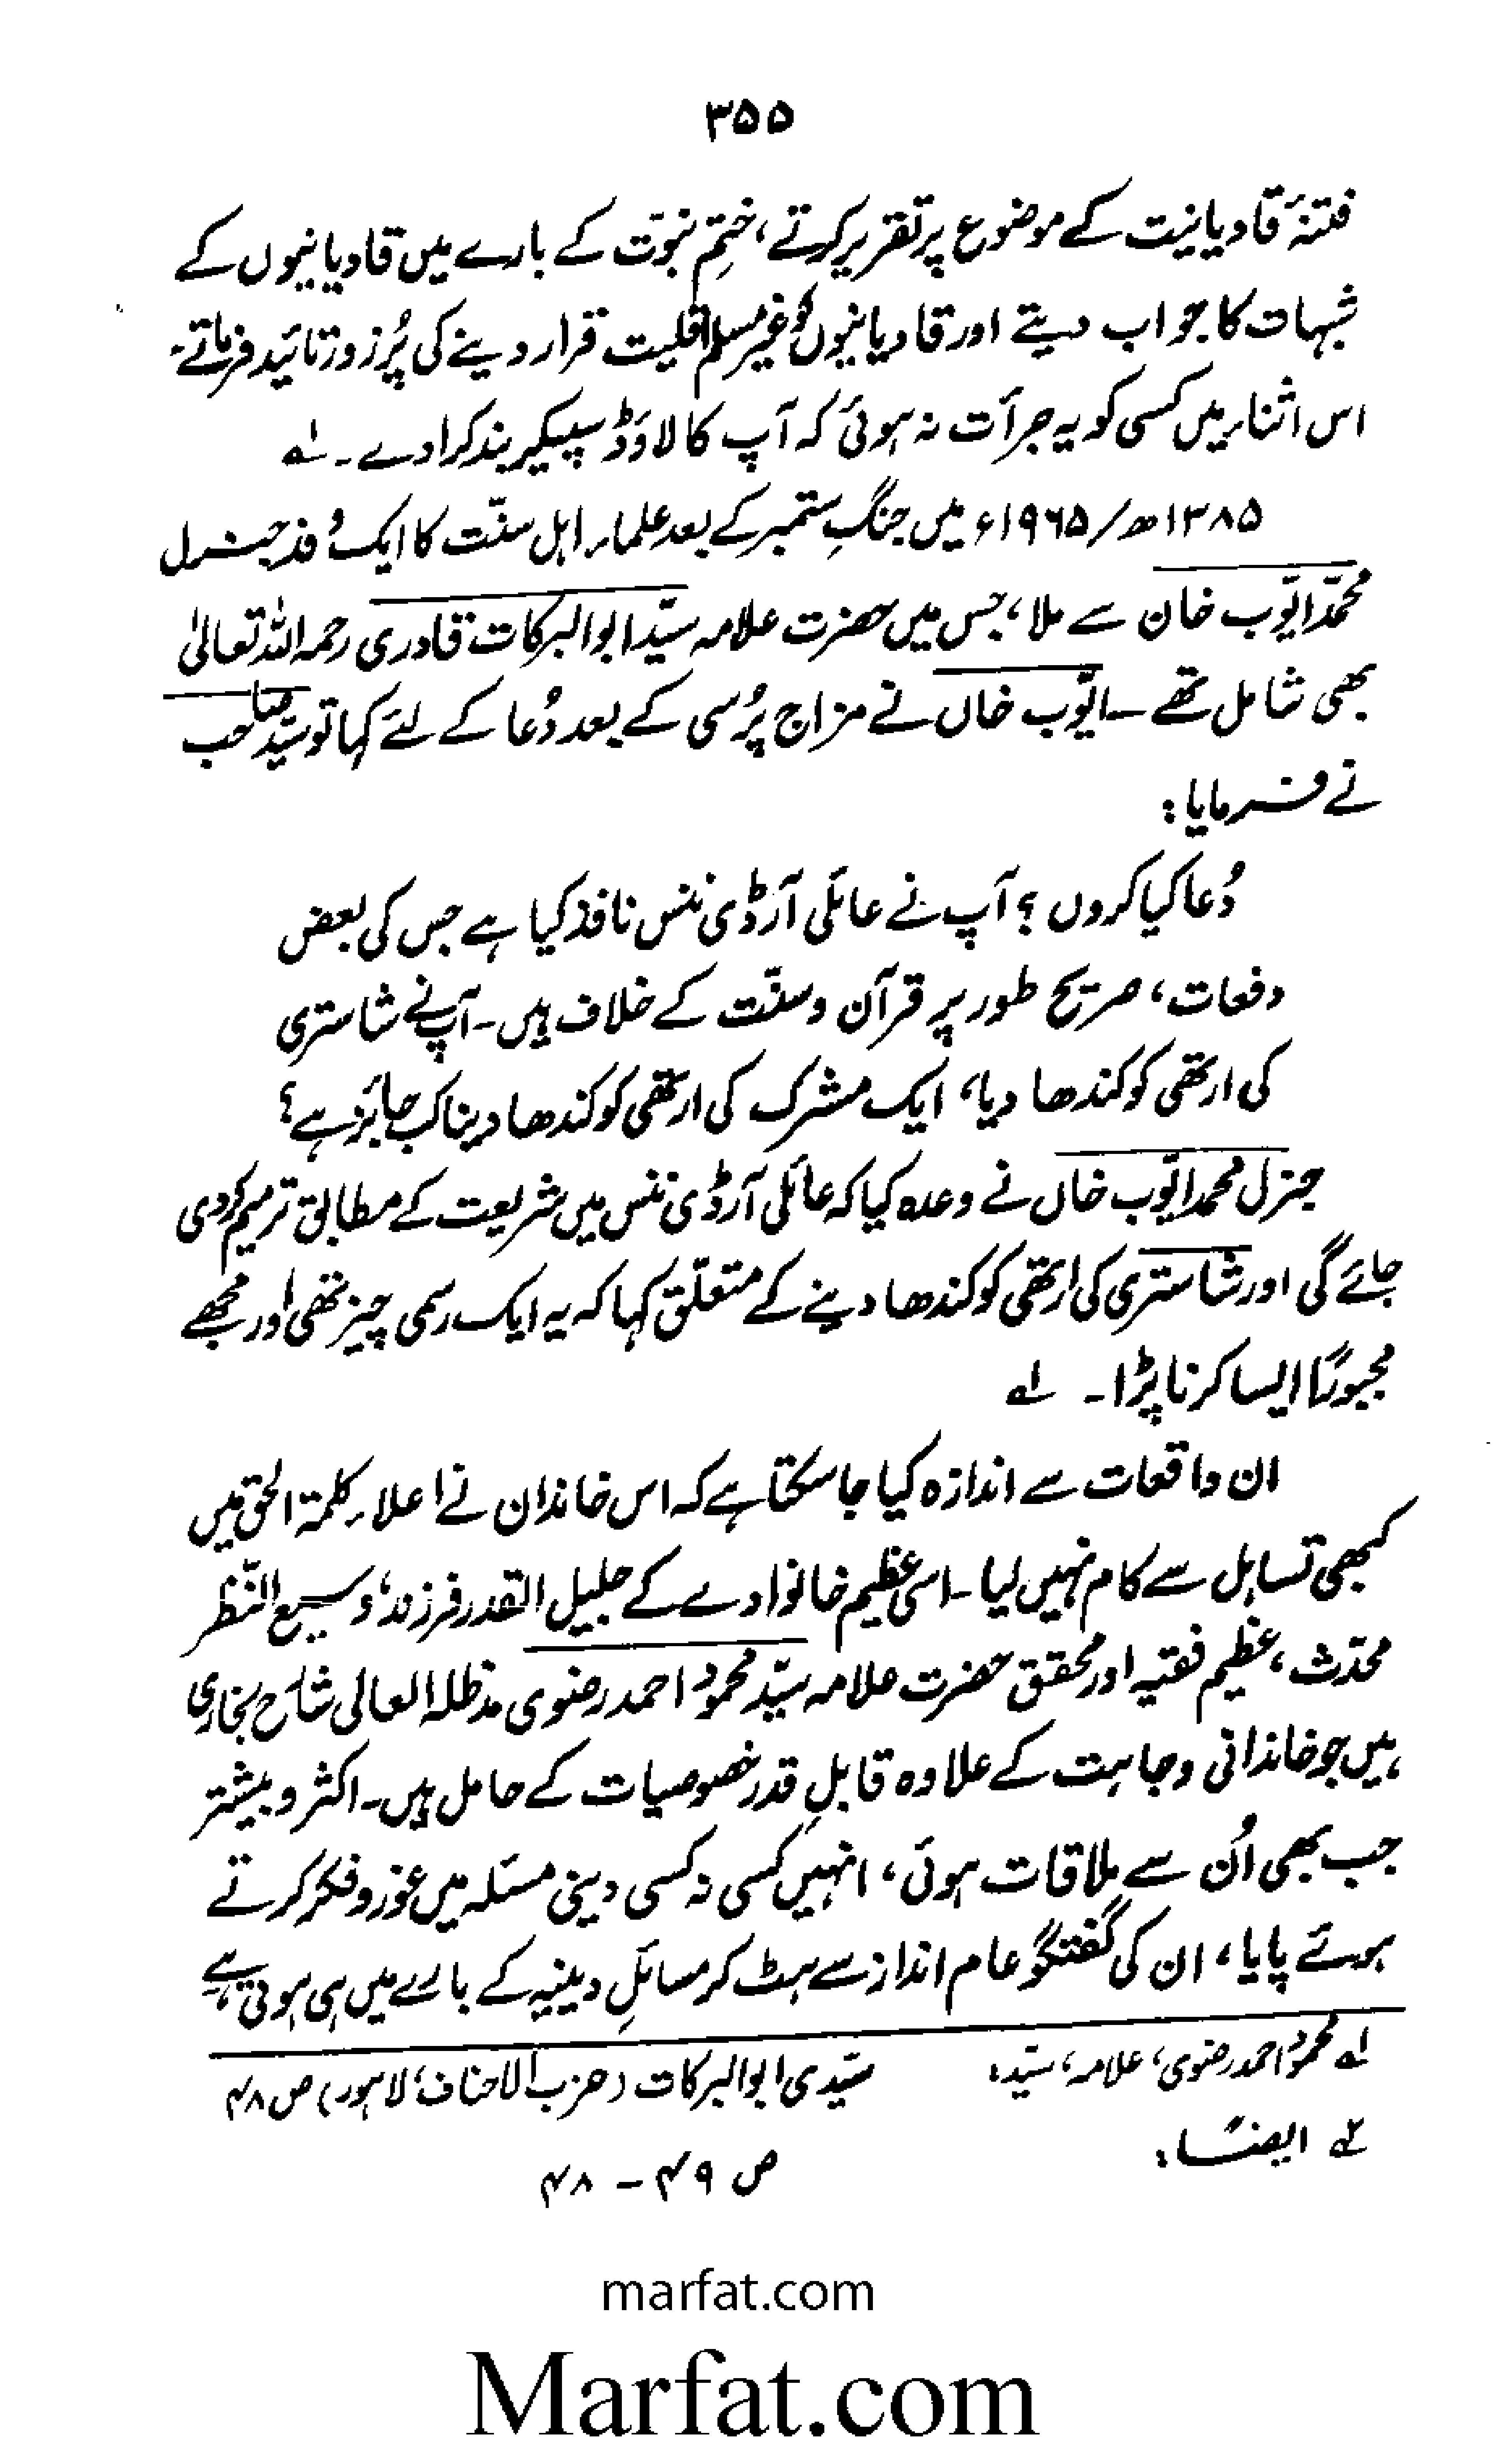 ۳۵۵
فتنۂ قادیانیت کے موضوع پر تقریر کرتے، ختمِ نبوّت کے بارے میں قادیانیوں کے
شبہات کا جواب دیتے اور قادیانیوں کو غیر مسلم اقلیت قرار دینے کی پُرزور تائید فرماتے۔
اس اثناء میں کسی کو یہ جرأت نہ ہوئی کہ آپ کا لاؤڈ سپیکر بند کرا دے۔ لے
۱۳۸۵ھ/۱۹۶۵ء میں جنگِ ستمبر کے بعد علماء اہل سنّت کا ایک وفد جنرل
محمّد ایّوب خان سے ملا، جس میں حضرت علامہ سیّد ابوالبرکات قادری رحمہ اللہ تعالیٰ
بھی شامل تھے۔ ایّوب خاں نے مزاج پُرسی کے بعد دُعا کے لئے کہا تو سیّد صاحب
نے فرمایا:
دُعا کیا کروں؟ آپ نے عائلی آرڈی ننس نافذ کیا ہے جس کی بعض
دفعات، صریح طور پر قرآن و سنّت کے خلاف ہیں۔ آپ نے شاستری
کی ارتھی کو کندھا دیا، ایک مشرک کی ارتھی کو کندھا دینا کب جائز ہے؟
جنرل محمد ایّوب خاں نے وعدہ کیا کہ عائلی آرڈی ننس میں شریعت کے مطابق ترمیم کر دی
جائے گی اور شاستری کی ارتھی کو کندھا دینے کے متعلّق کہا کہ یہ ایک رسمی چیز تھی اور مجھے
مجبورًا ایسا کرنا پڑا۔ لے
ان واقعات سے اندازہ کیا جا سکتا ہے کہ اس خاندان نے اعلاء کلمۃ الحق میں
کبھی تساہل سے کام نہیں لیا۔ اسی عظیم خانوادے کے جلیل القدر فرزند، وسیع النّظر
محدّث، عظیم فقیہ اور محقق حضرت علامہ سیّد محمود احمد رضوی مدظلہ العالی شارح بخاری
ہیں جو خاندانی وجاہت کے علاوہ قابلِ قدر خصوصیات کے حامل ہیں۔ اکثر و بیشتر
جب بھی اُن سے ملاقات ہوئی، انہیں کسی نہ کسی دینی مسئلہ میں غور و فکر کرتے
ہوئے پایا، ان کی گفتگو عام انداز سے ہٹ کر مسائلِ دینیہ کے بارے میں ہی ہوتی ہے
لے محمود احمد رضوی، علامہ، سیّد: سیّدی ابوالبرکات (حزب الاحناف، لاہور) ص ۴۸
۲ے ایضًا: ص ۴۹ - ۴۸
marfat.com
Marfat.com